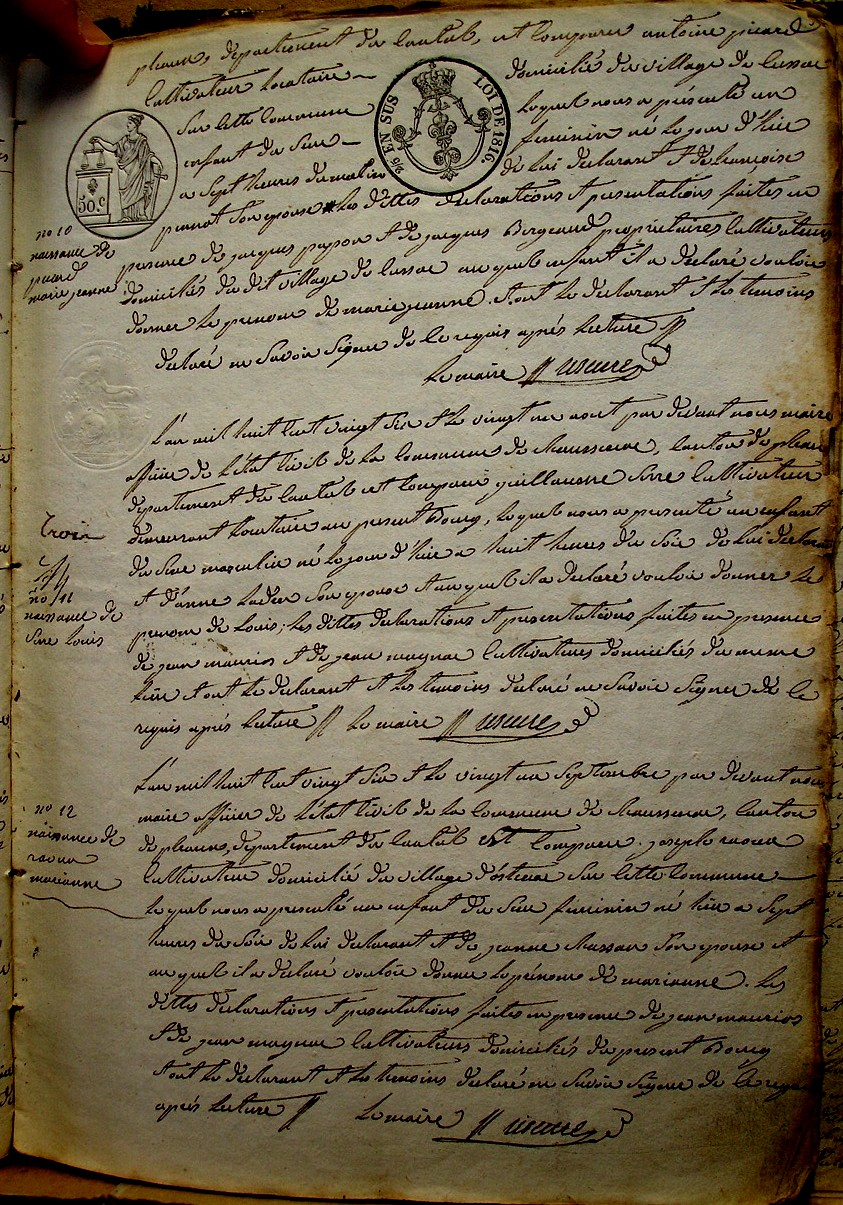 pleaux, departement du Cantal, est Comparu antoine picard
Cultivateur locataire — domicilié du village de Cussac
Sur Cette Commune lequel nous a présenté un
enfant du Sexe — feminin né le jour d'hier
a Sept heures du matin de lui declarant & de francoise
Son epouse les dittes declarations & presentations faites en
presence de jacques & de jacques Bergeaud propriétaires Cultivateurs
domiciliés du dit village de Cussac au quel enfant il a déclaré vouloir
donner le prenom de marie jeanne. & ont le declarant & les temoins
declaré ne Savoir Signer de Ce requis après lecture
le maire
2/5 EN SUS LOI DE 1816
50.c
no 10
naissance de
picard
marie jeanne
L'an mil huit Cent vingt Six & le vingt un aout par devant nous maire
officier de l'état Civil de la Commune de Chaussenac, Canton de pleaux
departement du Cantal est Comparu guillaume Serre Cultivateur
demeurant locataire au present Bourg, lequel nous a presenté un enfant
du Sexe masculin né le jour d'hier a huit heures du Soir de lui declarant
& d'anne Son epouse & au quel il a declaré vouloir donner le
prenom de Louis; les dittes declarations & presentations faites en presence
de jean maurios & de jean magnac Cultivateurs domiciliés du meme
lieu & ont le declarant & les temoins declaré ne Savoir Signer de Ce
requis après lecture le maire
Trois
no 11
naissance de
Serre Louis
L'an mil huit Cent vingt Six & le vingt un Septembre par devant nous
maire officier de l'état Civil de la Commune de Chaussenac, Canton
de pleaux, departement du Cantal est Comparu joseph raoux
Cultivateur domicilié du village d'ostenac Sur Cette Commune —
lequel nous a presenté un enfant du Sexe feminin né hier a Sept
heures du Soir de lui declarant & de jeanne Son epouse et
au quel il a declaré vouloir donner le prénom de marianne. Les
dittes declarations & presentations faites en presence de jean maurios
& de jean magnac Cultivateurs domiciliés du present Bourg
& ont le declarant & les temoins declaré ne Savoir Signer de Ce requis
après lecture le maire
no 12
naissance de
raoux
marianne